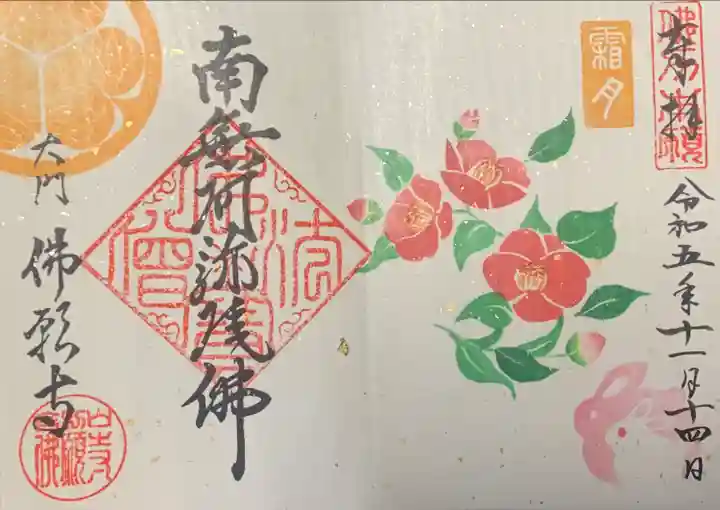 奉拝
令和五年十一月十四日
霜月
南無阿弥陀佛
大門
佛願寺